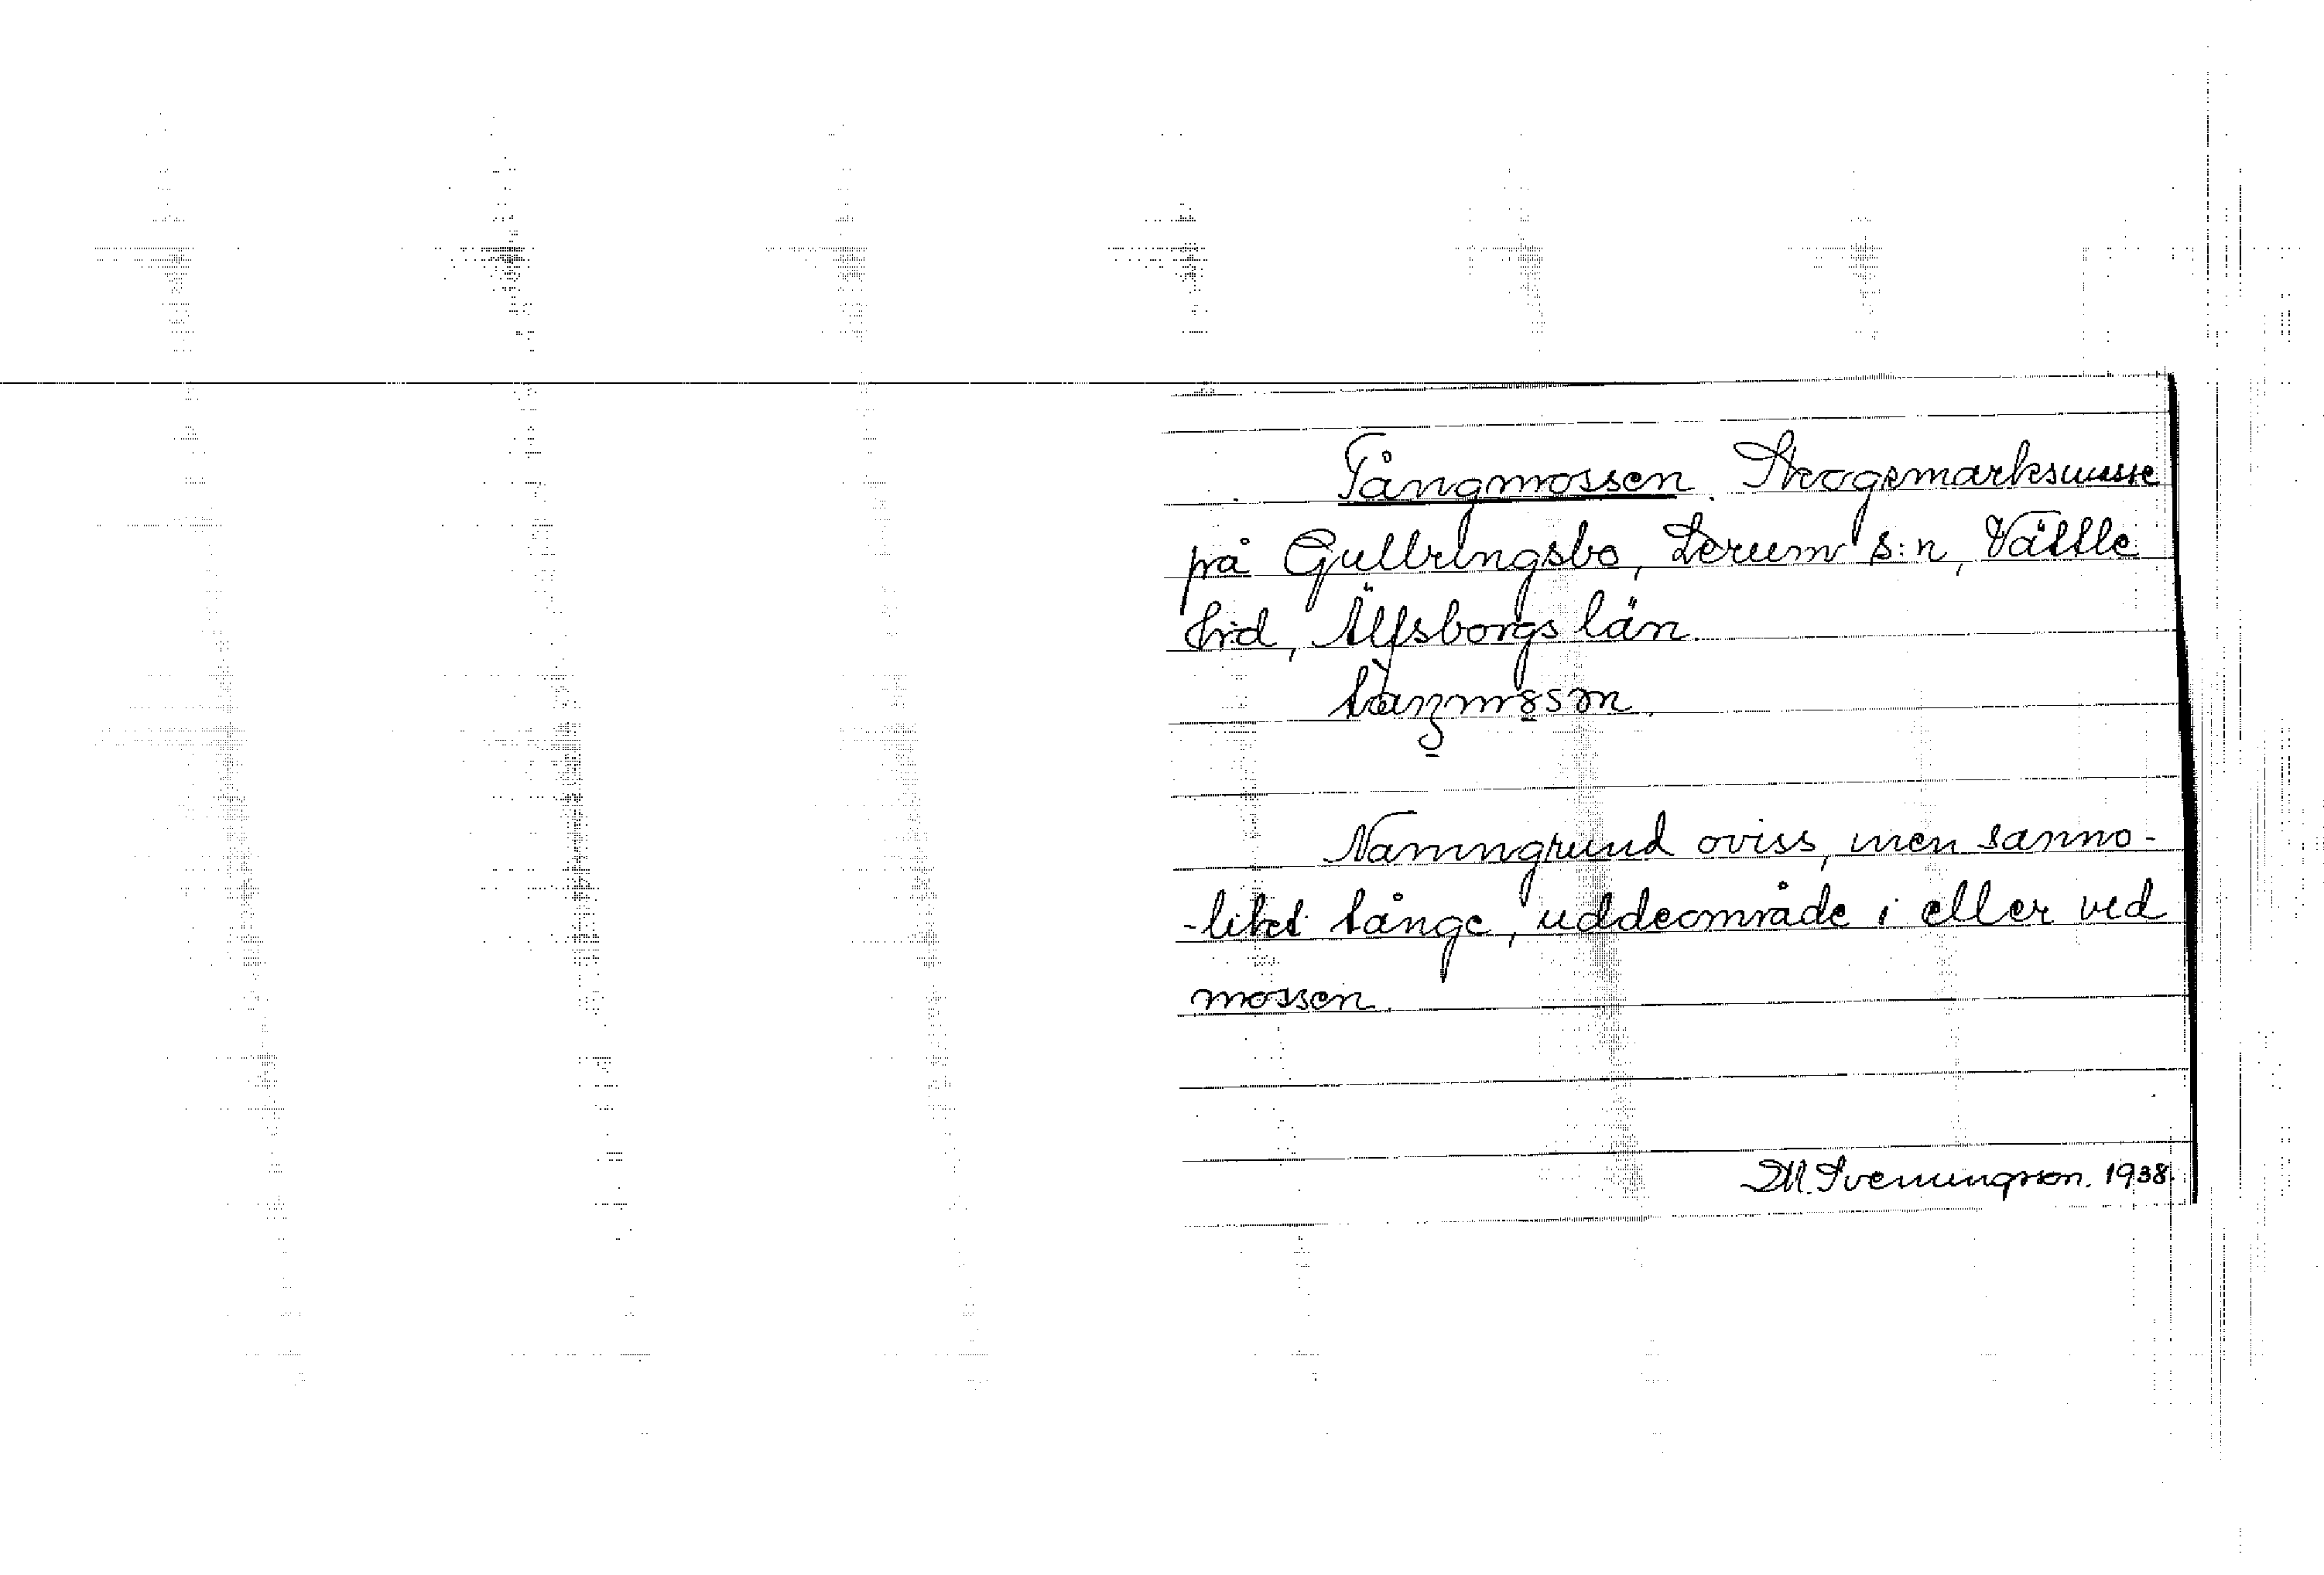 Tångmossen. Skogsmarksmosse
på Gullringsbo, Lerum s:n, Vättle
hrd, Älfsborgs län.
Namngrund oviss, men sanno-
-likt tånge, uddeområde i eller ved
mossen.
D.M. Svenningson. 1938.